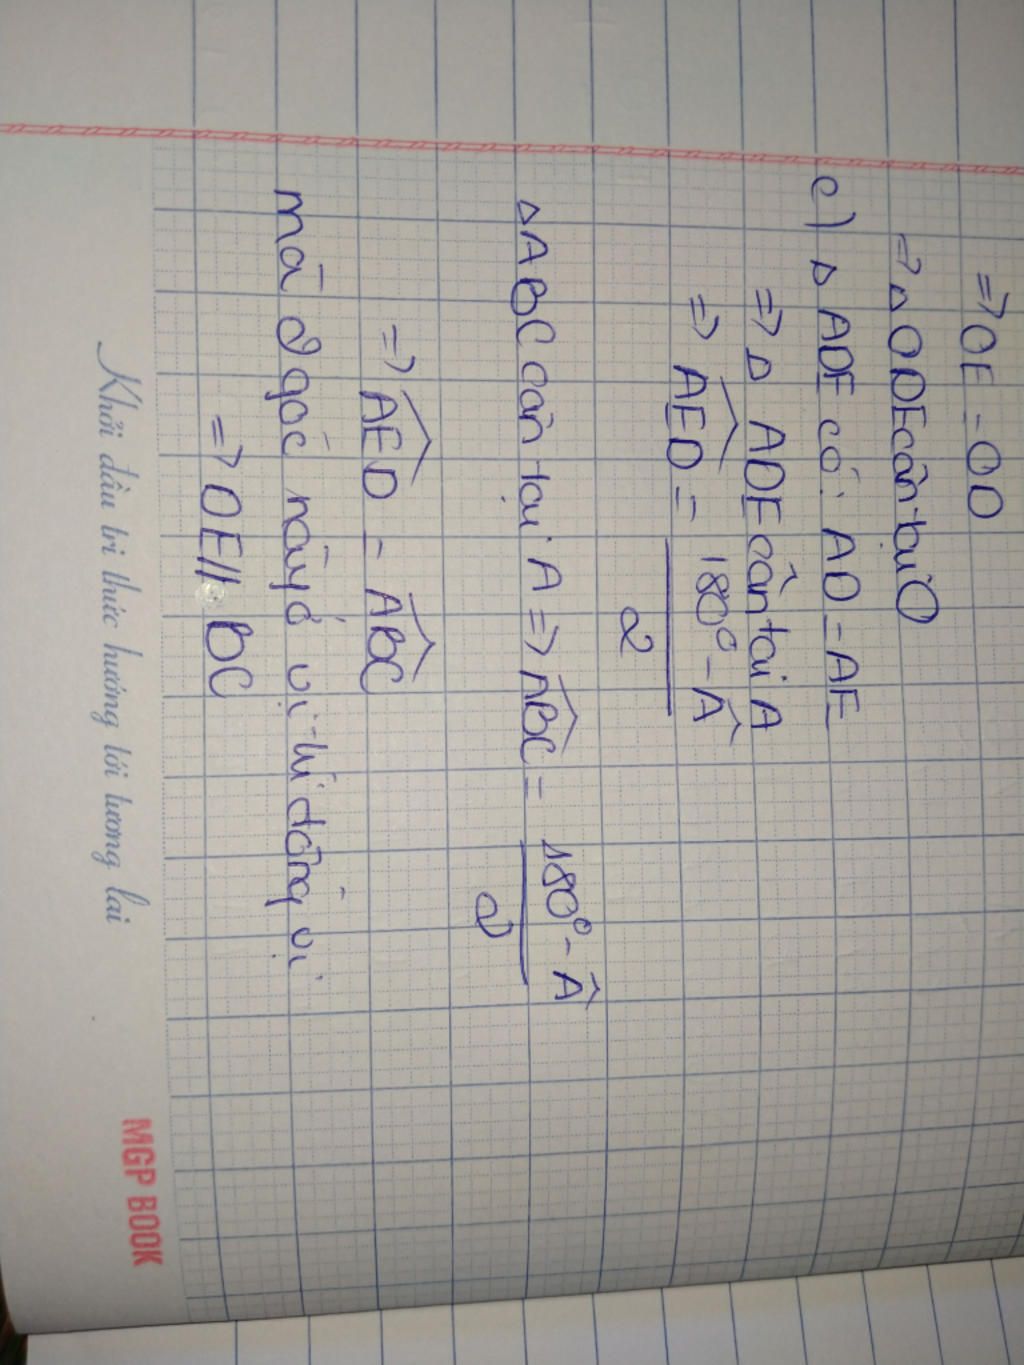 ⇒ OE = OD
⇒ △ ODE cân tại O
c) △ ADE có: AD = AE
⇒ △ ADE cân tại A
⇒ \widehat{AED} = \frac{180° - \widehat{A}}{2}
△ABC cân tại A ⇒ \widehat{ABC} = \frac{180° - \widehat{A}}{2}
⇒ \widehat{AED} = \widehat{ABC}
mà 2 góc này ở vị trí đồng vị
⇒ DE // BC
Khởi đầu tri thức hướng tới tương lai
MGP BOOK